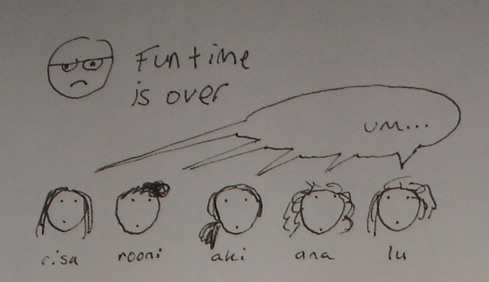 Fun time
is over
um...
risa rooni aki ana lu